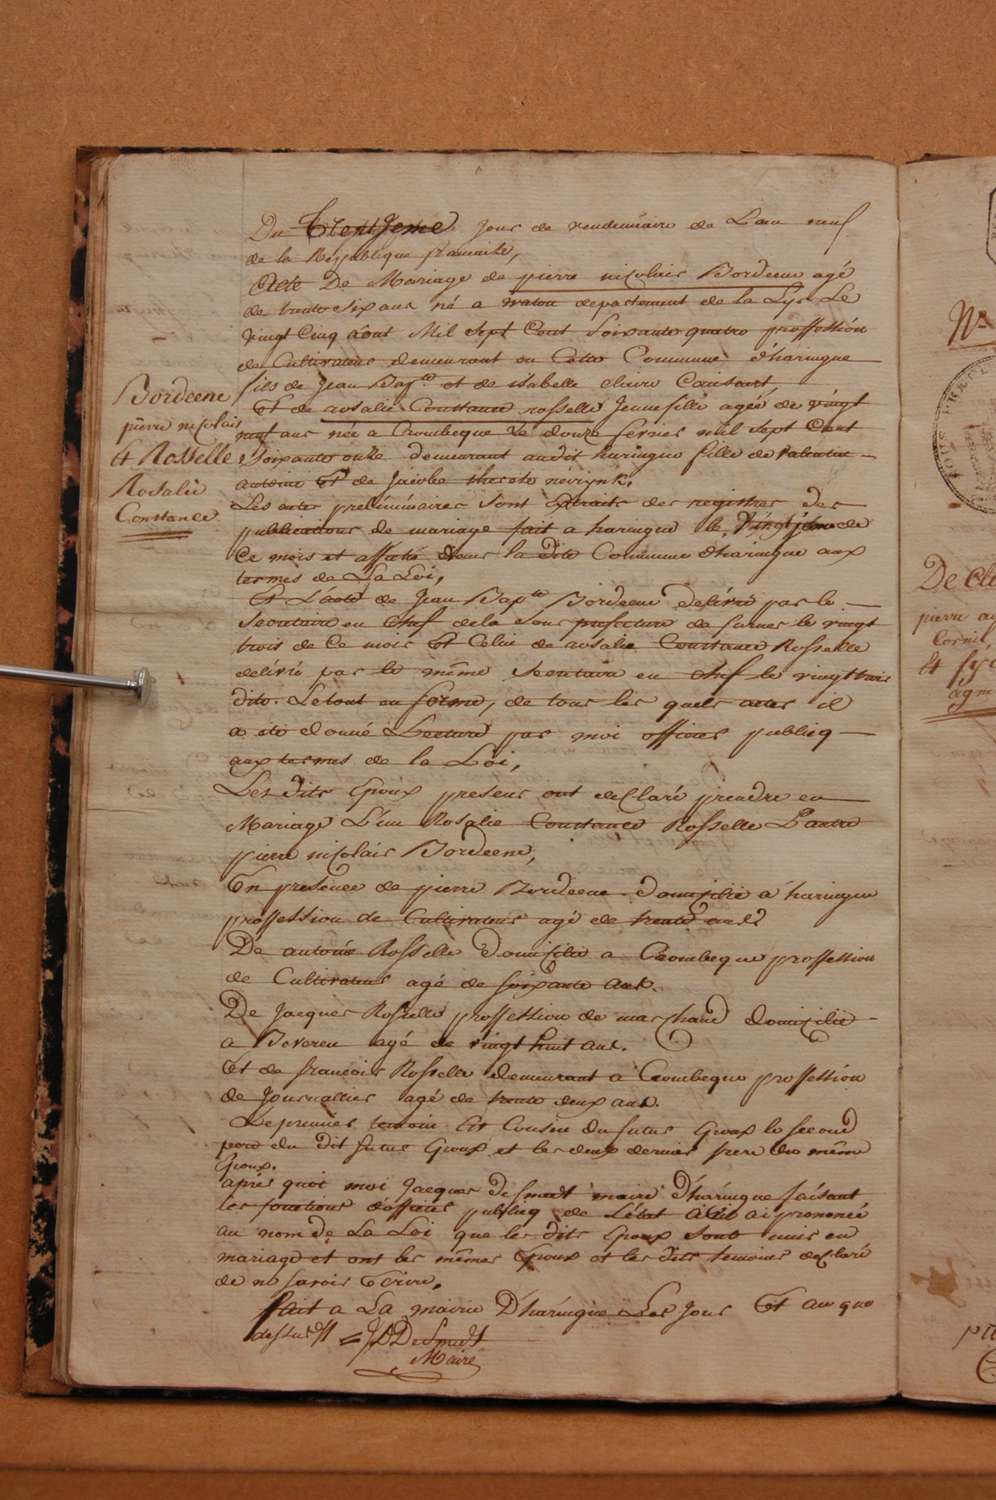 Du Trentjeme jour de vendemiaire de L'an neuf
de la Republique francaise,
Acte De Mariage de pierre nicolais Bordeene agé
de trente six ans né a watou departement de la Lys Le
vingt Cinq aout Mil sept Cent Soixante quatre proffession
de Cultivateur demeurant en Cette Commune d'haringue
fils de Jean Bapte et de isabelle claire
Et de rosalie Constance rosselle Jeune fille agée de vingt
neuf ans née a Crombeque Le douze fevrier mil sept Cent
Soixante onze demeurant audit haringue fille de valentin
antoine Et de Jacoba therese
Les actes preliminaires sont Extraits des registres des
publications de mariage fait a haringue le vingtjeme de
Ce mois et affiché dans la dite Commune d'haringue aux
termes de La Loi,
Et L'acte de Jean Bapte Bordeene delivré par le
Secretaire en Chef de la Sous prefecture de furnes le vingt
trois de Ce mois Et Celui de rosalie Constance Rosselle
delivré par le même Secretaire en Chef le vingt trois
dito. Le tout en forme, de tous les quels actes il
a été donné Lecture par moi officier publicq
aux termes de la Loi,
Les dits Epoux presens ont declaré prendre en
Mariage L'un Rosalie Constance Rosselle L'autre
pierre nicolais Bordeene,
En presence de pierre Bordeene domicilié a haringue
proffession de Cultivateur agé de trente ans
De antoine Rosselle domicilié a Crombeque proffession
de Cultivateur agé de soixante ans.
De Jacques Rosselle proffession de marchand domicilié
a Beveren agé de vingt huit ans.
Et de francois Rosselle demeurant a Crombeque proffession
de Journallier agé de trente deux ans.
Le premier temoin Est Cousin du futur Epoux le second
pere du dit futur Epoux et les deux dernier frere du même
Epoux.
après quoi moi Jacques deSmedt maire d'haringue faisant
les fonctions d'officier publicq de L'état Civil ai prononcé
au nom de La Loi que les dits Epoux sont unis en
mariage et ont les mêmes Epoux et les dits temoins declaré
de ne savoir Ecrire,
fait a La mairie D'haringue Les Jour Et an que
dessus = J DeSmedt
Maire
Bordeene
pierre nicolais
& Rosselle
Rosalie
Constance
N.
De Cle
pierre
Cornil
&